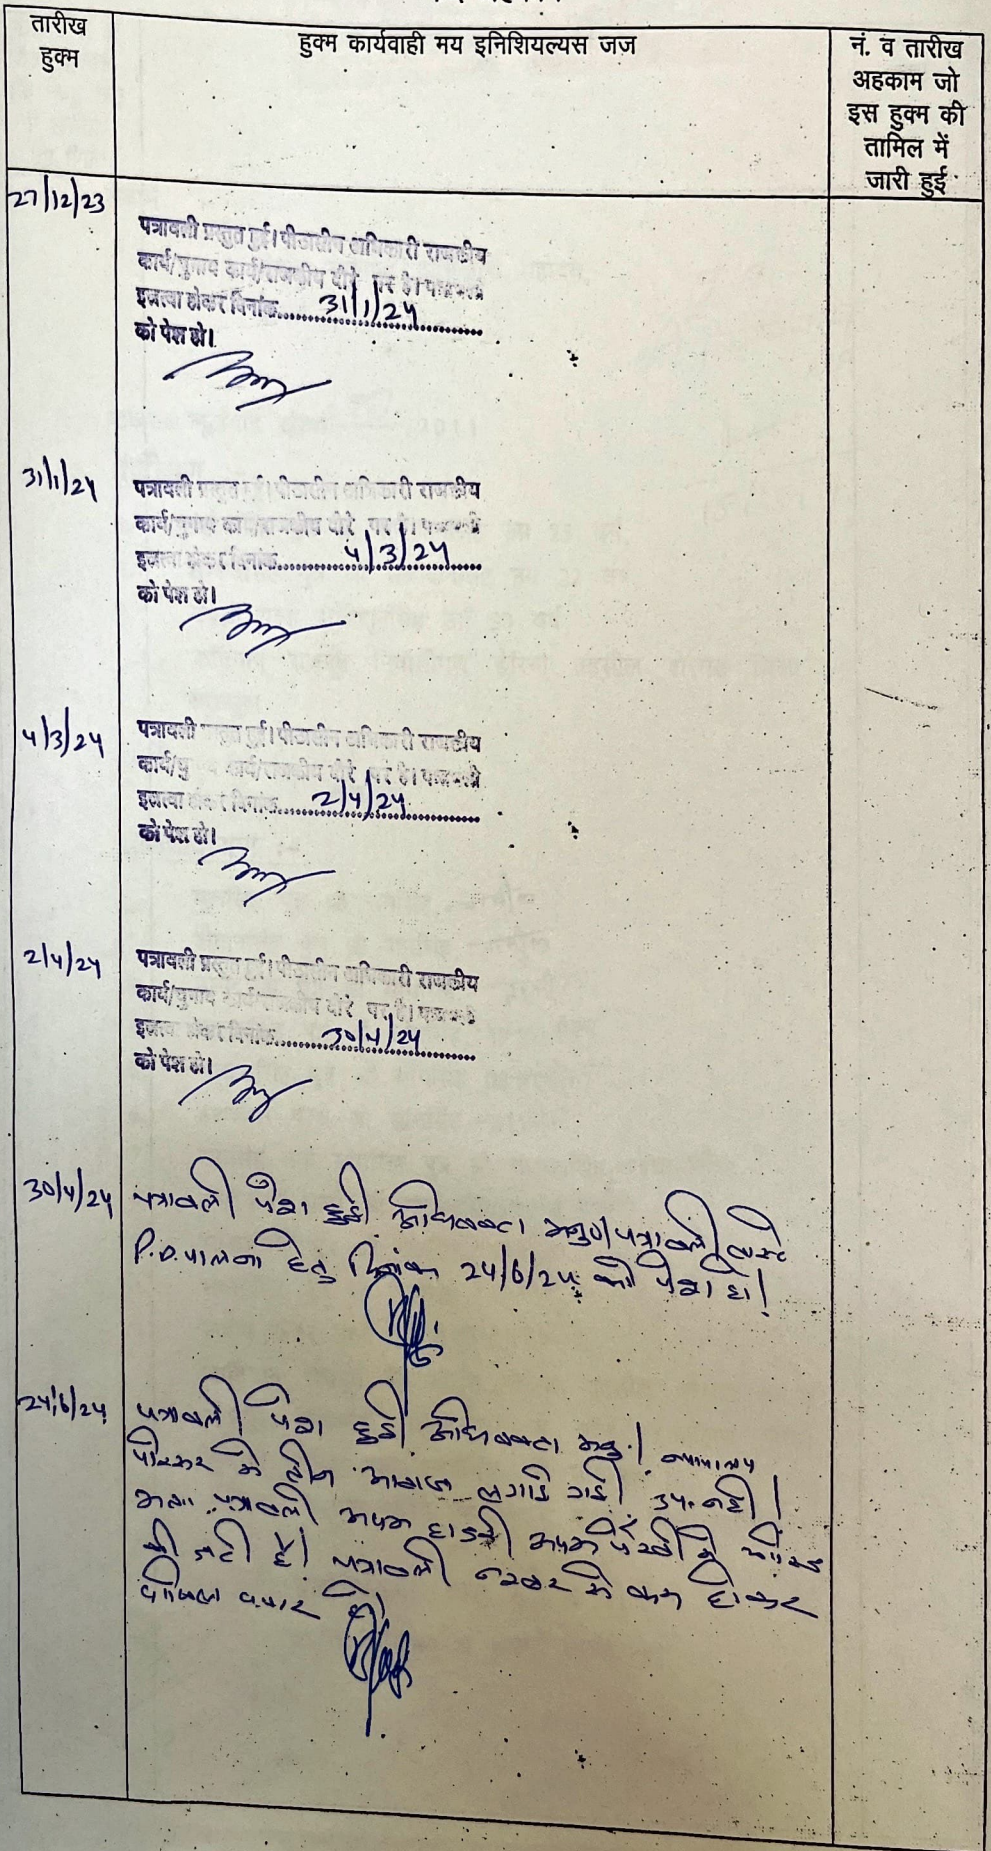 तारीख
हुक्म
हुक्म कार्यवाही मय इनिशियल्यस जज
नं. व तारीख
अहकाम जो
इस हुक्म की
तामिल में
जारी हुई
27/12/23
पत्रावली प्रस्तुत हुई। पीठासीन अधिकारी राजकीय
कार्य/चुनाव कार्य/राजकीय दौरे पर है। पत्रावली
इजल्वा होकर दिनांक 31/1/24
को पेश हो।
31/1/24
पत्रावली प्रस्तुत हुई। पीठासीन अधिकारी राजकीय
कार्य/चुनाव कार्य/राजकीय दौरे पर है। पत्रावली
इजल्वा होकर दिनांक 4/3/24
को पेश हो।
4/3/24
पत्रावली प्रस्तुत हुई। पीठासीन अधिकारी राजकीय
कार्य/चुनाव कार्य/राजकीय दौरे पर है। पत्रावली
इजल्वा होकर दिनांक 2/4/24
को पेश हो।
2/4/24
पत्रावली प्रस्तुत हुई। पीठासीन अधिकारी राजकीय
कार्य/चुनाव कार्य/राजकीय दौरे पर है। पत्रावली
इजल्वा होकर दिनांक 30/4/24
को पेश हो।
30/4/24
पत्रावली पेश हुई। अधिवक्ता अनु० पत्रावली वास्ते
P.D. पालना हेतु दिनांक 24/6/24 को पेश हो।
24/6/24
पत्रावली पेश हुई। अधिवक्ता अनु.। न्यायालय
परिसर में तीन आवाज लगाई गई। उप. नहीं।
अतः पत्रावली अदम हाजरी अदम पैरवी में खारिज
की जाती है। पत्रावली नम्बर से कम होकर
दाखिल दफ्तर हो।